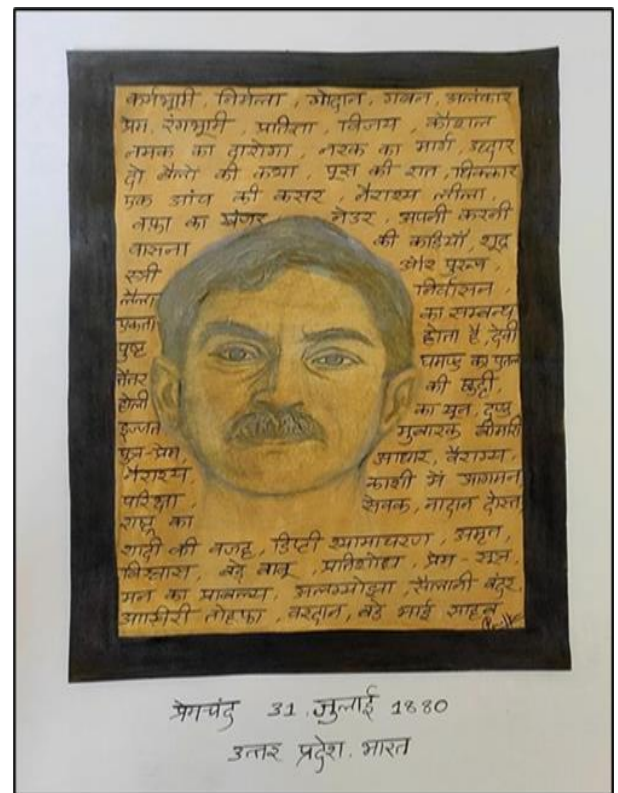 कर्मभूमि, निर्मला, गोदान, गबन, अलंकार
प्रेम, रंगभूमि, प्रतिज्ञा, विजय, कौशल
नमक का दारोगा, नरक का मार्ग, उद्दार
दो बैलो की कथा, पूस की रात, धिक्कार
एक आंच की कसर, नैराश्य लीला,
वफ़ा का खंजर नेउर, अपनी करनी
वासना की कड़ियाँ, शूद्र
स्त्री और पुरुष,
लैला निर्वासन,
एकता का सम्बन्ध
पुष्ट होता है, देवी
तेंतर घमण्ड का पुतला
होली की छुट्टी,
इज्जत का खून, दण्ड
पुत्र-प्रेम, मुबारक बीमारी
नैराश्य आधार, वैराग्य,
परिक्षा काशी में आगमन,
राष्ट्र का सेवक, नादान दोस्त,
शादी की वजह, डिप्टी श्यामाचरण, अमृत,
विश्वास, बड़े बाबू, प्रतिशोध, प्रेम-सूत्र,
मन का प्राबल्य, अलग्योझा, सैलानी बंदर,
आखिरी तोहफा, वरदान, बड़े भाई साहब
प्रेमचंद 31. जुलाई 1880
उत्तर प्रदेश. भारत